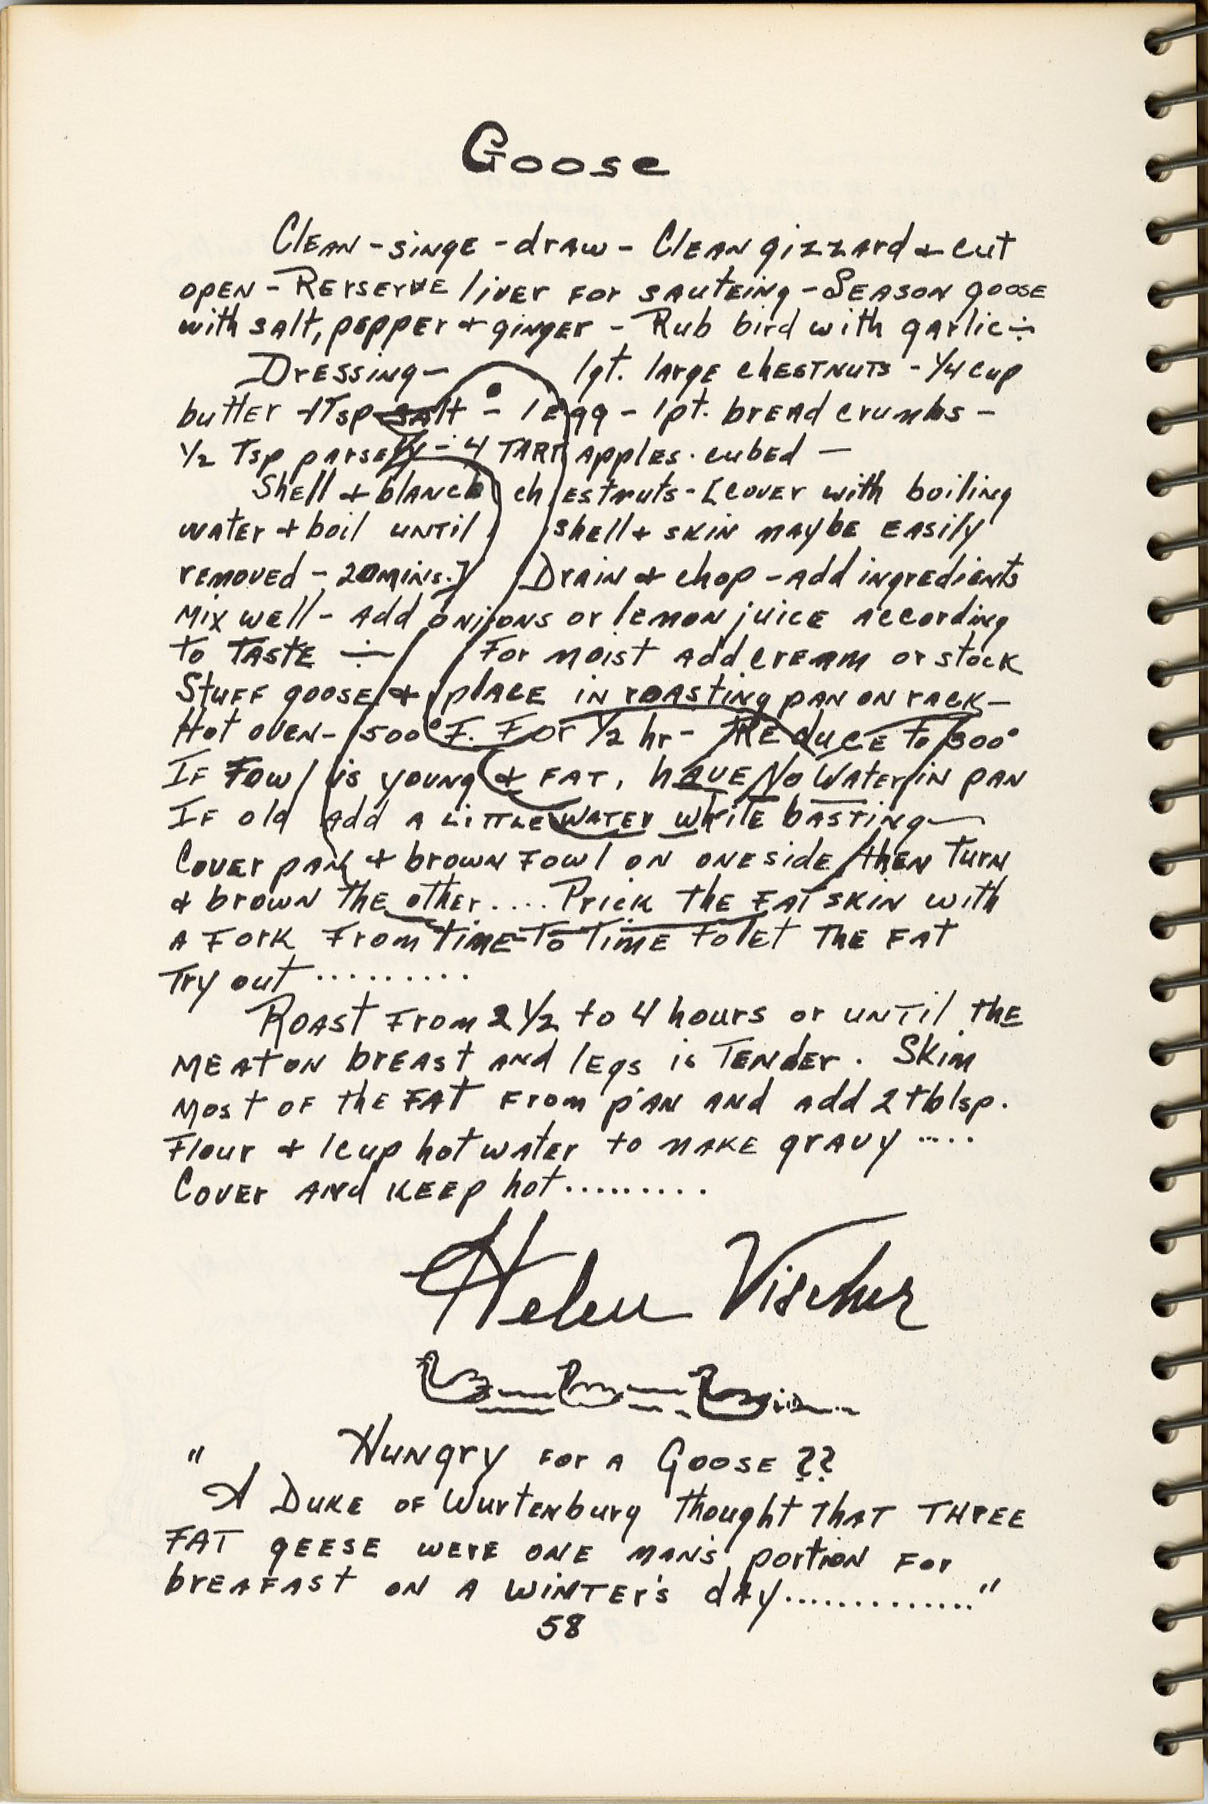 Goose
Clean - singe - draw - Clean gizzard & cut
open - Rerserve liver for sauteing - Season goose
with salt, pepper & ginger - Rub bird with garlic ÷
Dressing - 1qt. large chestnuts - 1/4 cup
butter - 1 Tsp salt - 1 egg - 1pt. bread crumbs -
1/2 Tsp parsely - 4 TART apples. cubed -
Shell & blanch chestnuts - [cover with boiling
water & boil until shell & skin maybe easily
removed - 20 mins.] Drain & chop - add ingredients
Mix well - add onions or lemon juice according
to taste ÷ For moist add cream or stock
Stuff goose & place in roasting pan on rack -
Hot oven - 500° F. For 1/2 hr - Reduce to 300°
If Fowl is young & fat, have No Water in pan
If old add a little water while basting -
Cover pan & brown fowl on one side then turn
& brown the other.... Prick the fat skin with
a fork from time to time to let the fat
Try out .........
Roast from 2 1/2 to 4 hours or until the
meat on breast and legs is tender. Skim
most of the fat from pan and add 2 tblsp.
Flour & 1 cup hot water to make gravy ....
Cover and keep hot.........
Helen Vischer
" Hungry for a Goose ??
A Duke of Wurtenburg thought that three
fat geese were one man's portion for
breafast on a winter's day.............."
58